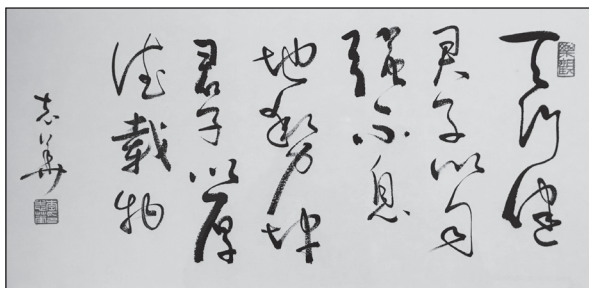 樂觀
天行健
君子以自
强不息
地勢坤
君子以厚
德載物
志華